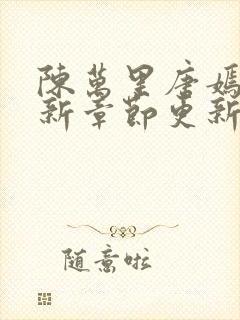 陳萬里唐嫣
新章節更新
随意啦